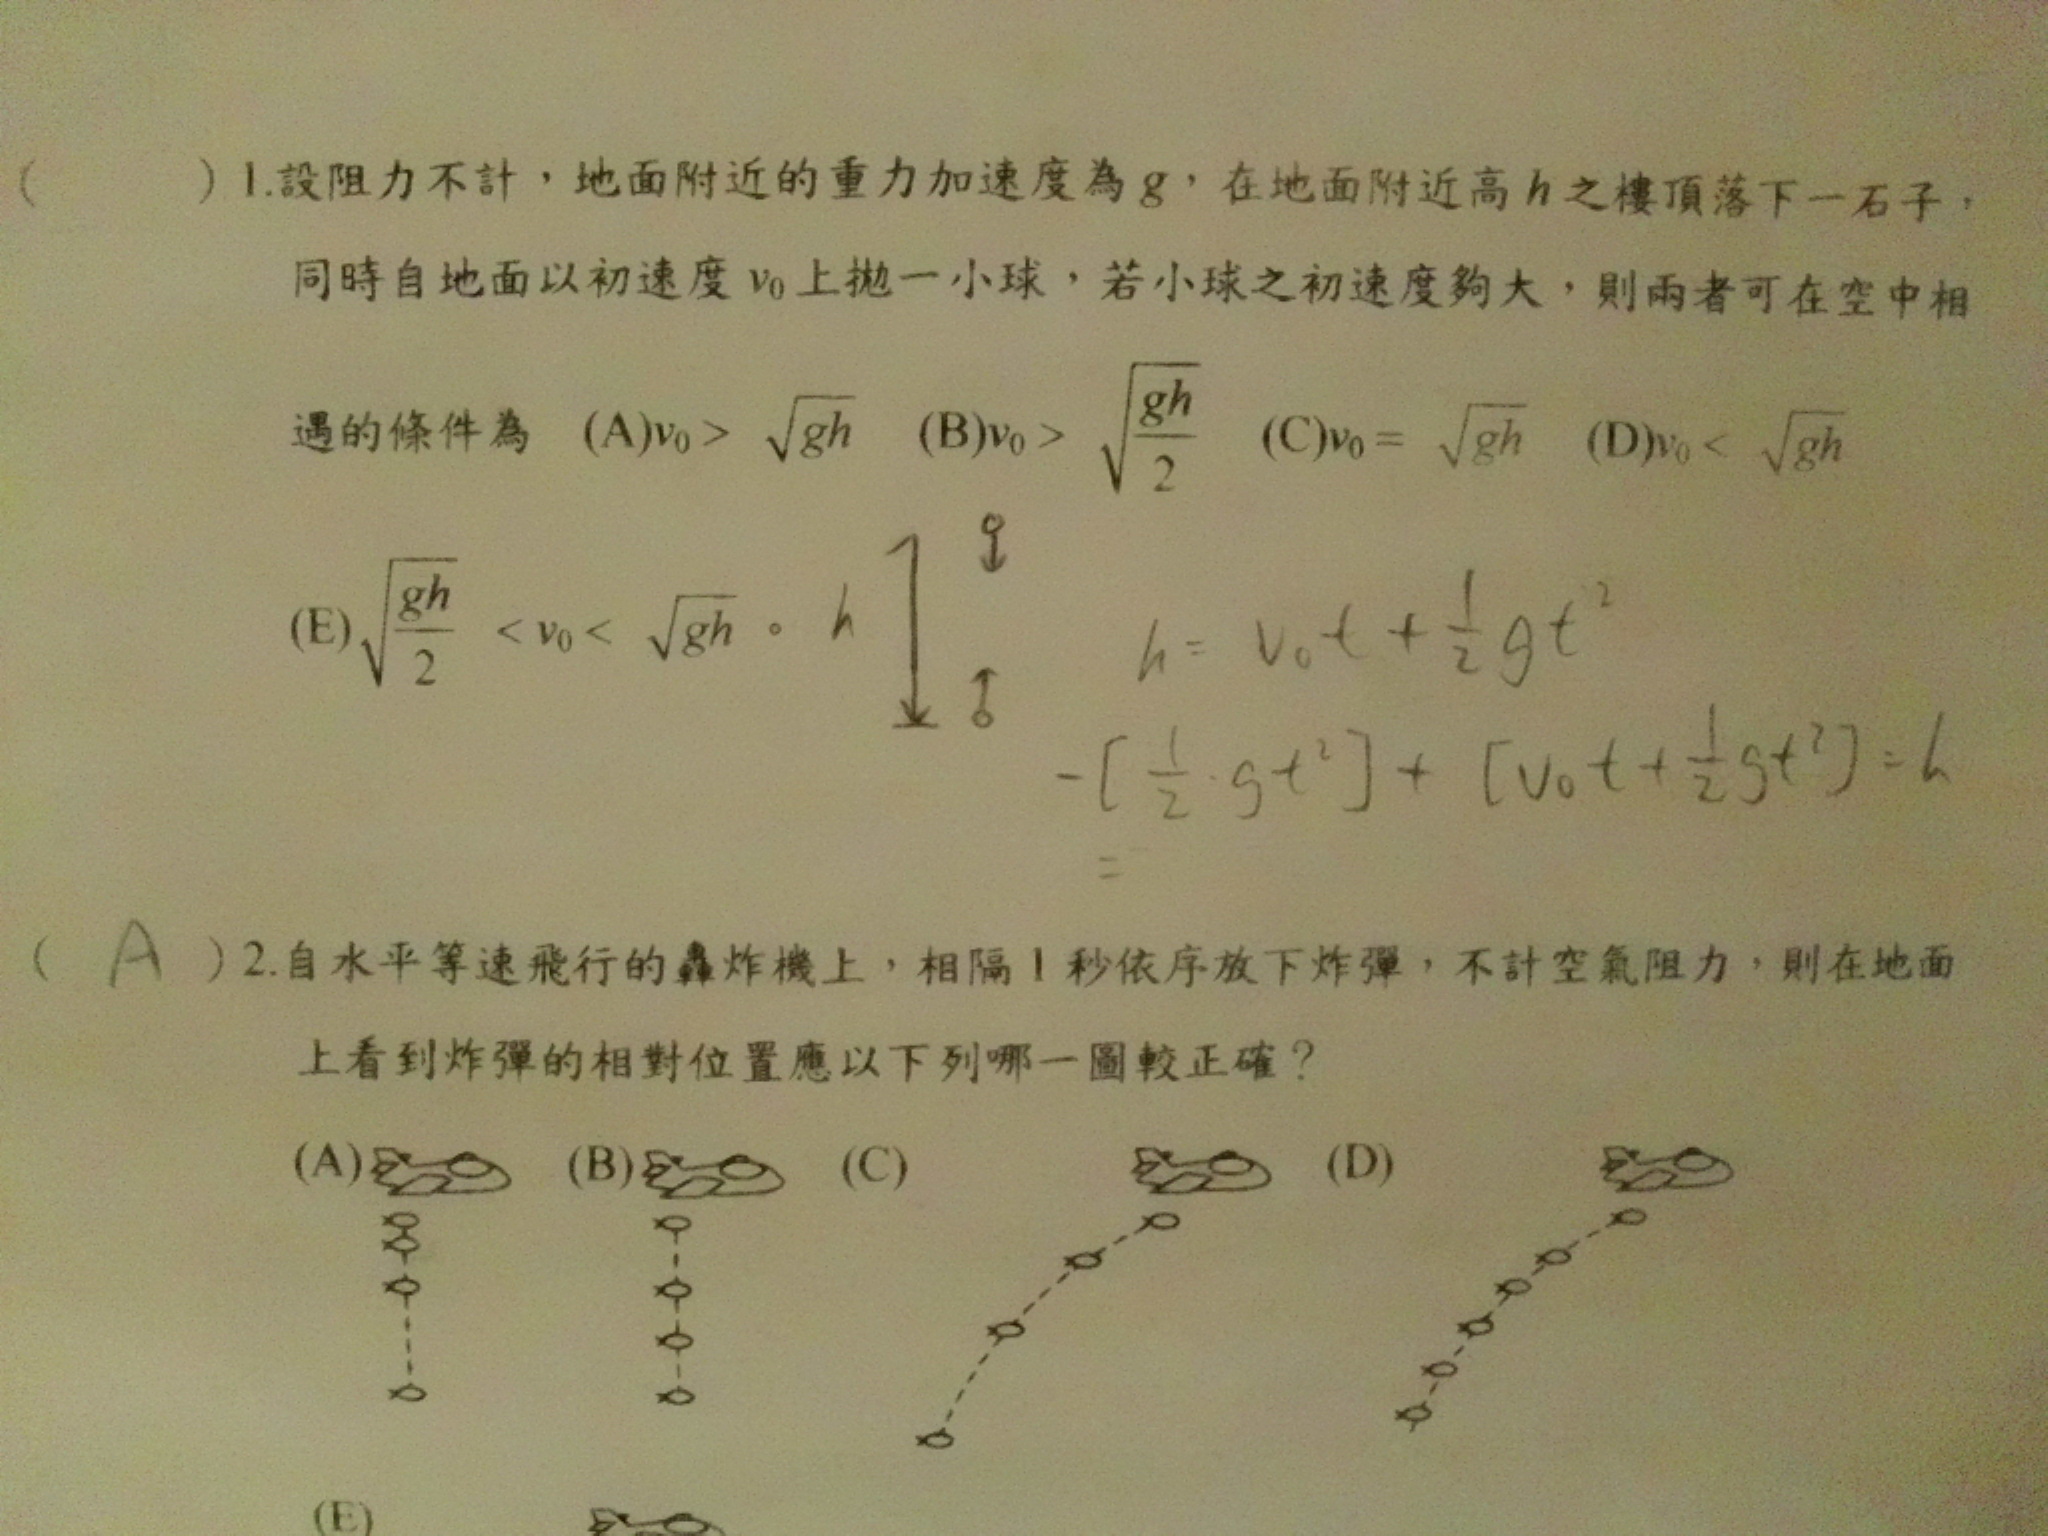 (　　　)1.設阻力不計，地面附近的重力加速度為g，在地面附近高h之樓頂落下一石子，
同時自地面以初速度v₀上拋一小球，若小球之初速度夠大，則兩者可在空中相
遇的條件為　(A)v₀> √gh　(B)v₀> √(gh/2)　(C)v₀= √gh　(D)v₀< √gh
(E)√(gh/2) <v₀< √gh 。
h
h= v₀t + ½gt²
-[½·gt²] + [v₀t + ½gt²] = h
=
( A )2.自水平等速飛行的轟炸機上，相隔1秒依序放下炸彈，不計空氣阻力，則在地面
上看到炸彈的相對位置應以下列哪一圖較正確？
(A)　(B)　(C)　(D)
(E)